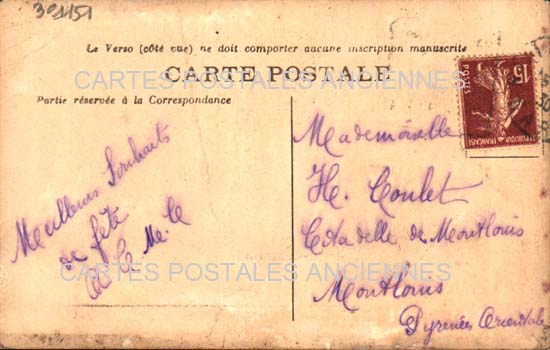 301151
Le Verso (côté vue) ne doit comporter aucune inscription manuscrite
CARTES POSTALES ANCIENNES
CARTE POSTALE
Partie réservée à la Correspondance
15
POSTES
REPUBLIQUE FRANÇAISE
Meilleurs Souhaits
de fête
de la Me. C
Mademoiselle
H. Coulet
Citadelle de Montlouis
Montlouis
Pyrenées Orientale
CARTES POSTALES ANCIENNES